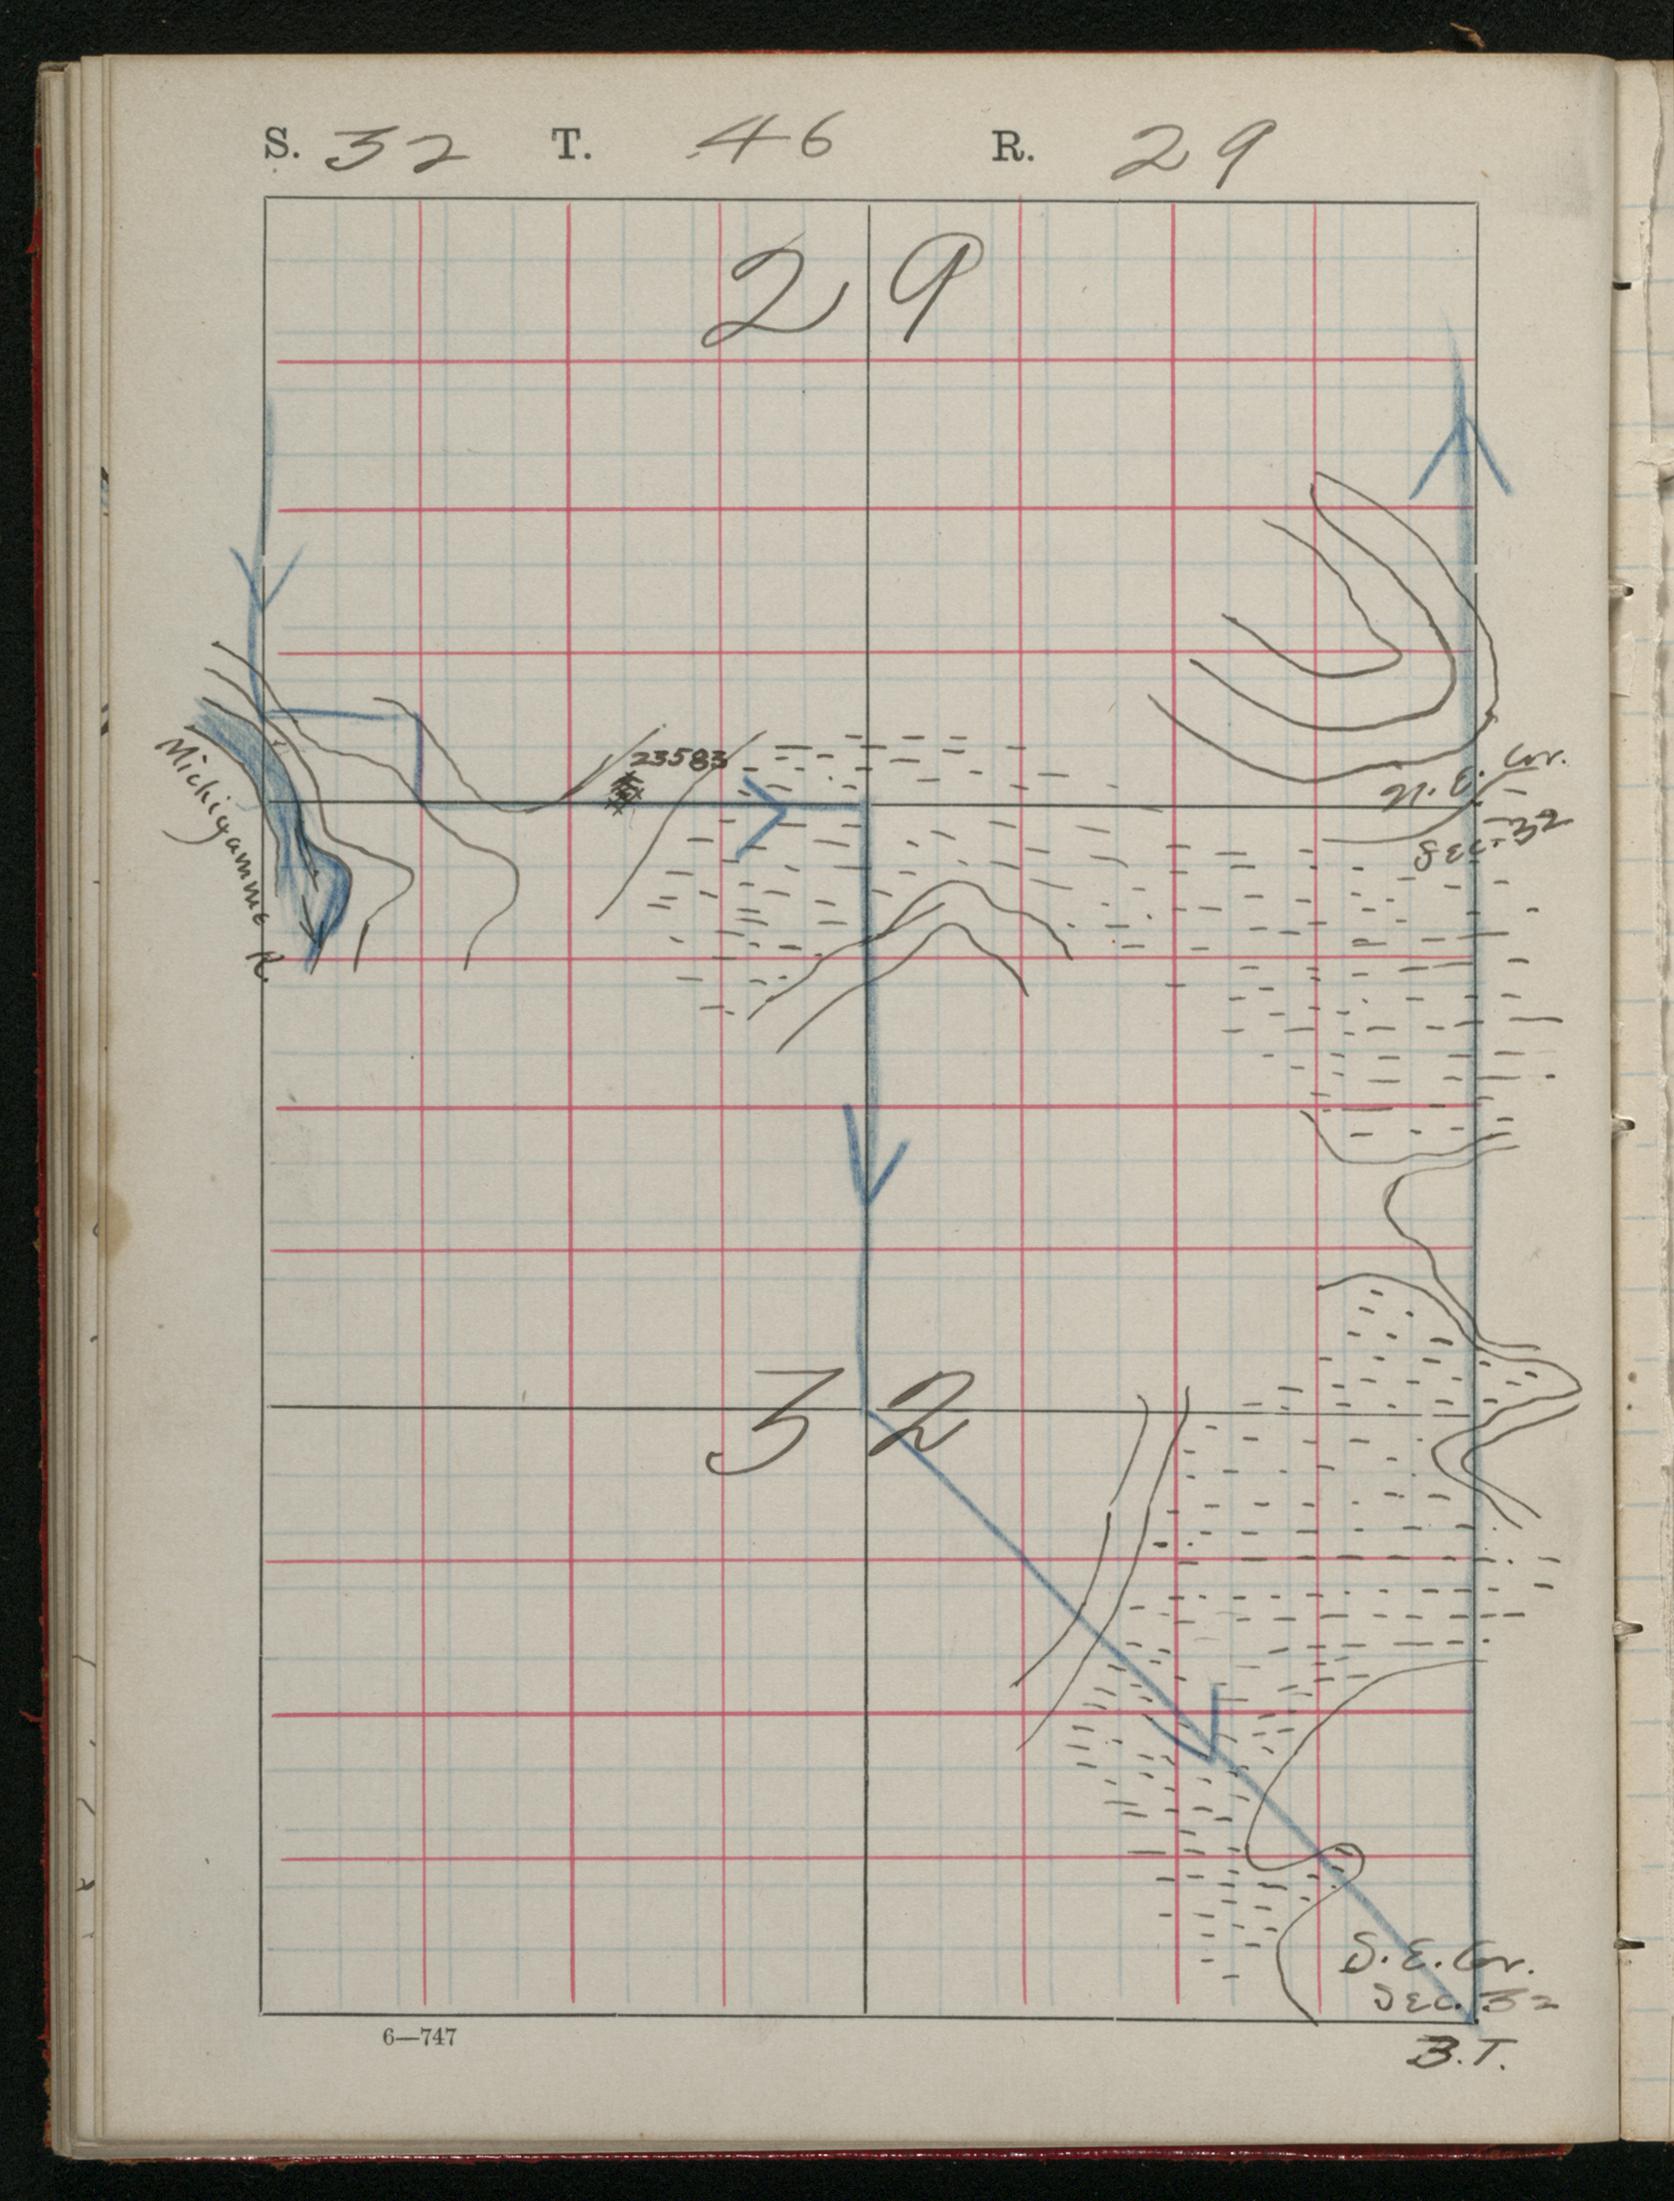 S. 32 T. 46 R. 29
29
23583
Michigamme R.
N. E. Cor.
Sec. 32
32
S. E. Cor.
Sec. 32
B. T.
6—747